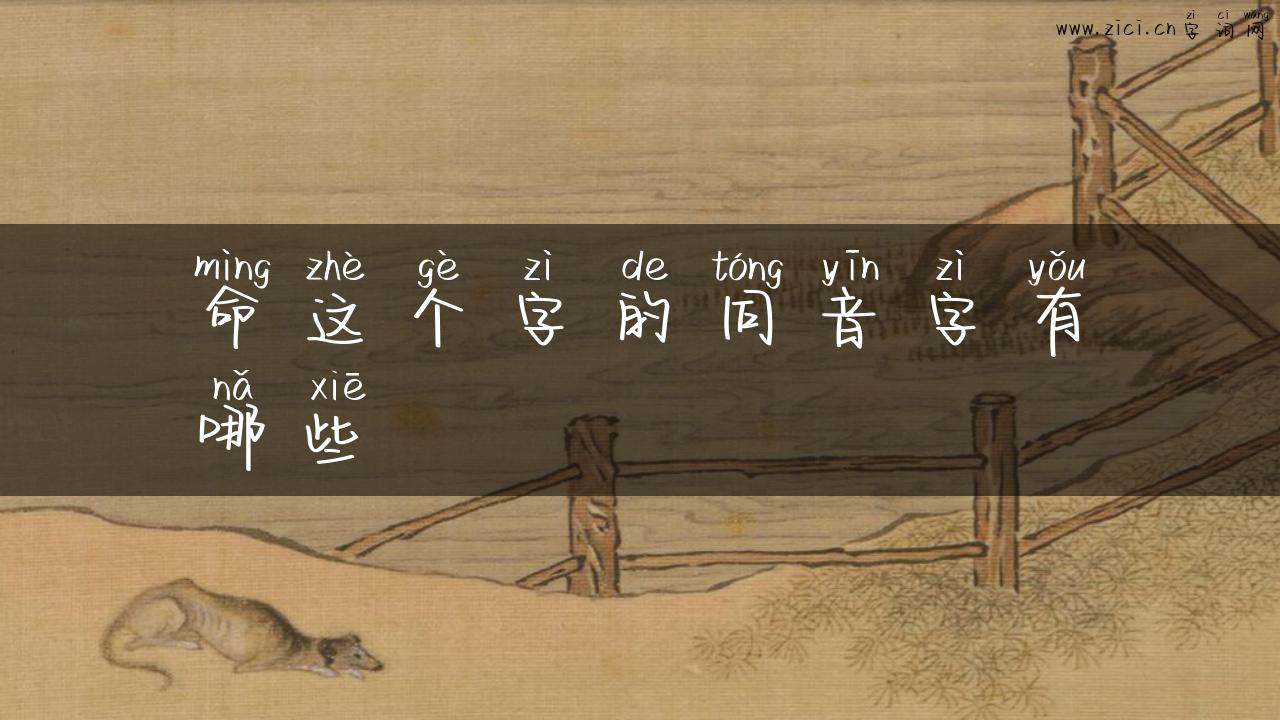 zì cí wǎng
www.zici.cn 字词网
mìng zhè gè zì de tóng yīn zì yǒu
命这个字的同音字有
nǎ xiē
哪些